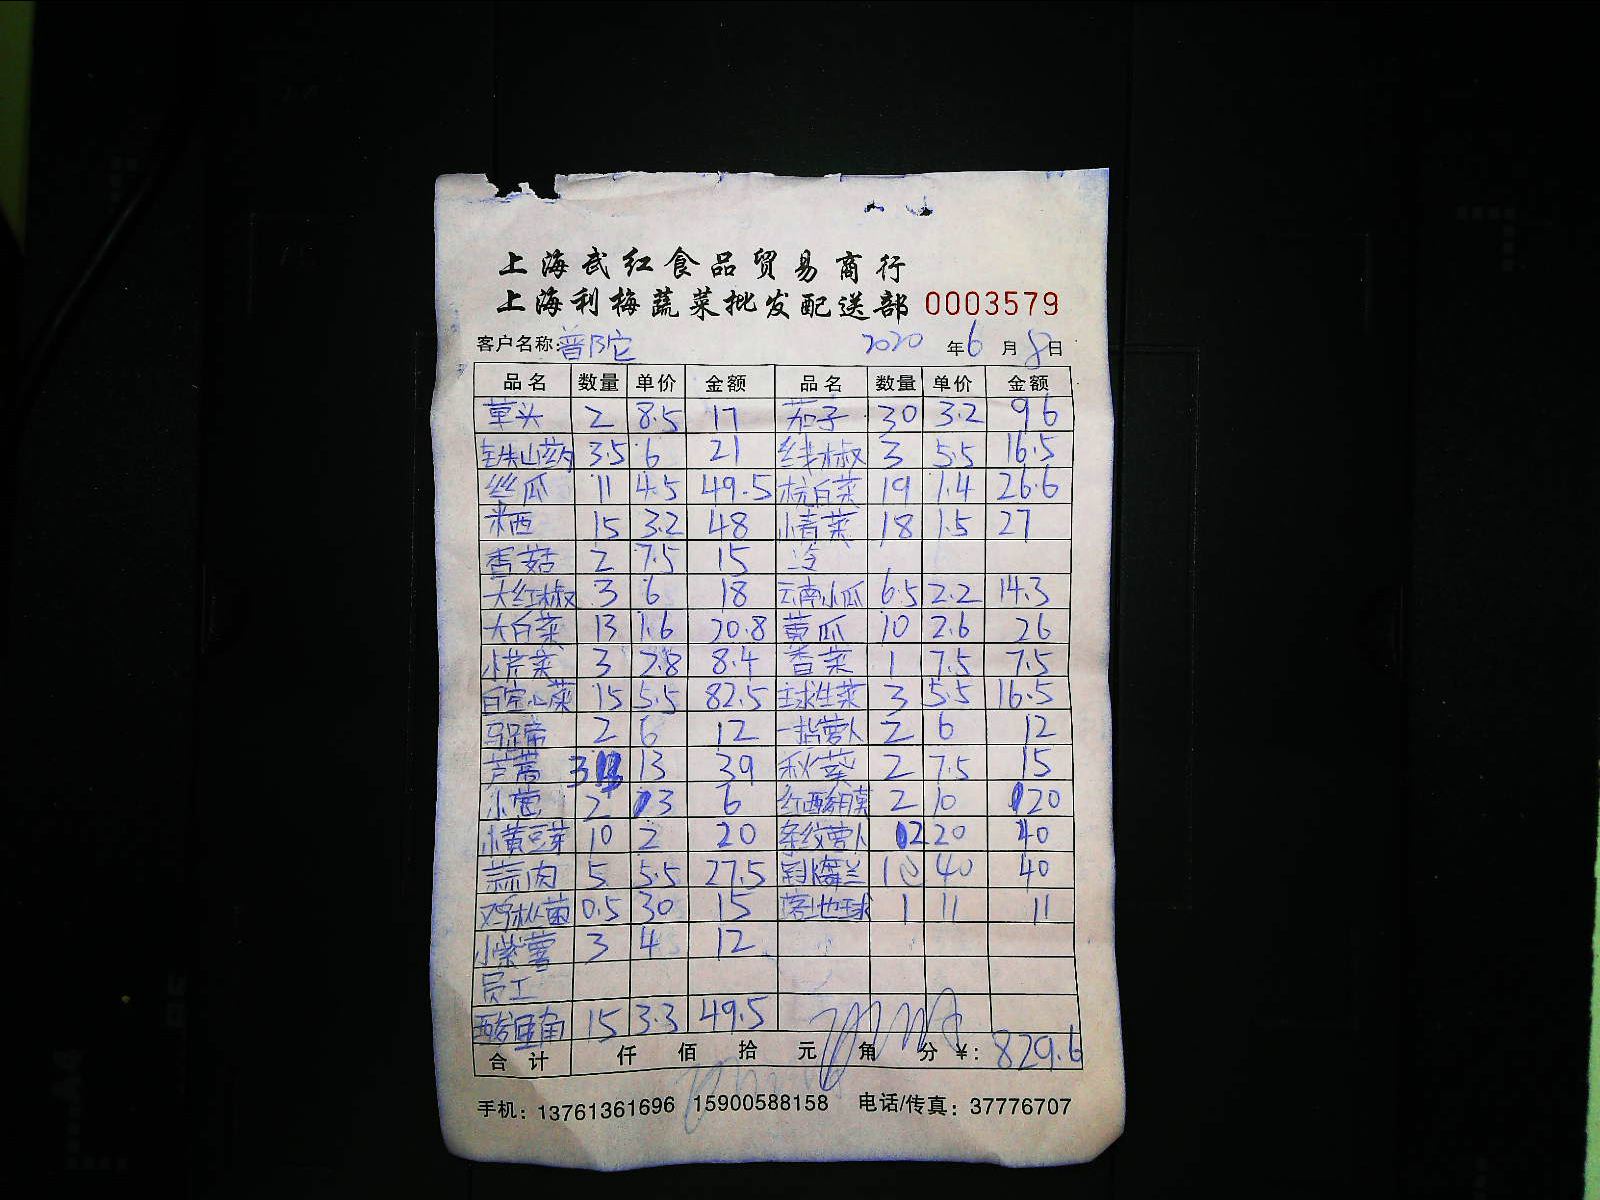 上海武红食品贸易商行
上海利梅蔬菜批发配送部 0003579
客户名称:普陀 2020 年 6 月 8 日
品名 数量 单价 金额 品名 数量 单价 金额
草头 2 8.5 17 茄子 30 3.2 96
铁山药 3.5 6 21 线椒 3 5.5 16.5
丝瓜 11 4.5 49.5 杭白菜 19 1.4 26.6
米西 15 3.2 48 小青菜 18 1.5 27
香菇 2 7.5 15 冷
大红椒 3 6 18 云南小瓜 6.5 2.2 14.3
大白菜 13 1.6 20.8 黄瓜 10 2.6 26
小芹菜 3 2.8 8.4 香菜 1 7.5 7.5
白空心菜 15 5.5 82.5 球生菜 3 5.5 16.5
马蹄 2 6 12 一指萝卜 2 6 12
芦蒿 3 13 39 秋葵 2 7.5 15
小葱 2 3 6 红酸膜 2 10 20
小黄豆芽 10 2 20 条纹萝卜 2 20 40
蒜肉 5 5.5 27.5 兰 1 40 40
鸡枞菌 0.5 30 15 落地球 1 11 11
小紫薯 3 4 12
员工
酸豆角 15 3.3 49.5
合计 仟 佰 拾 元 角 分 ¥: 829.6
手机: 13761361696 15900588158 电话/传真: 37776707